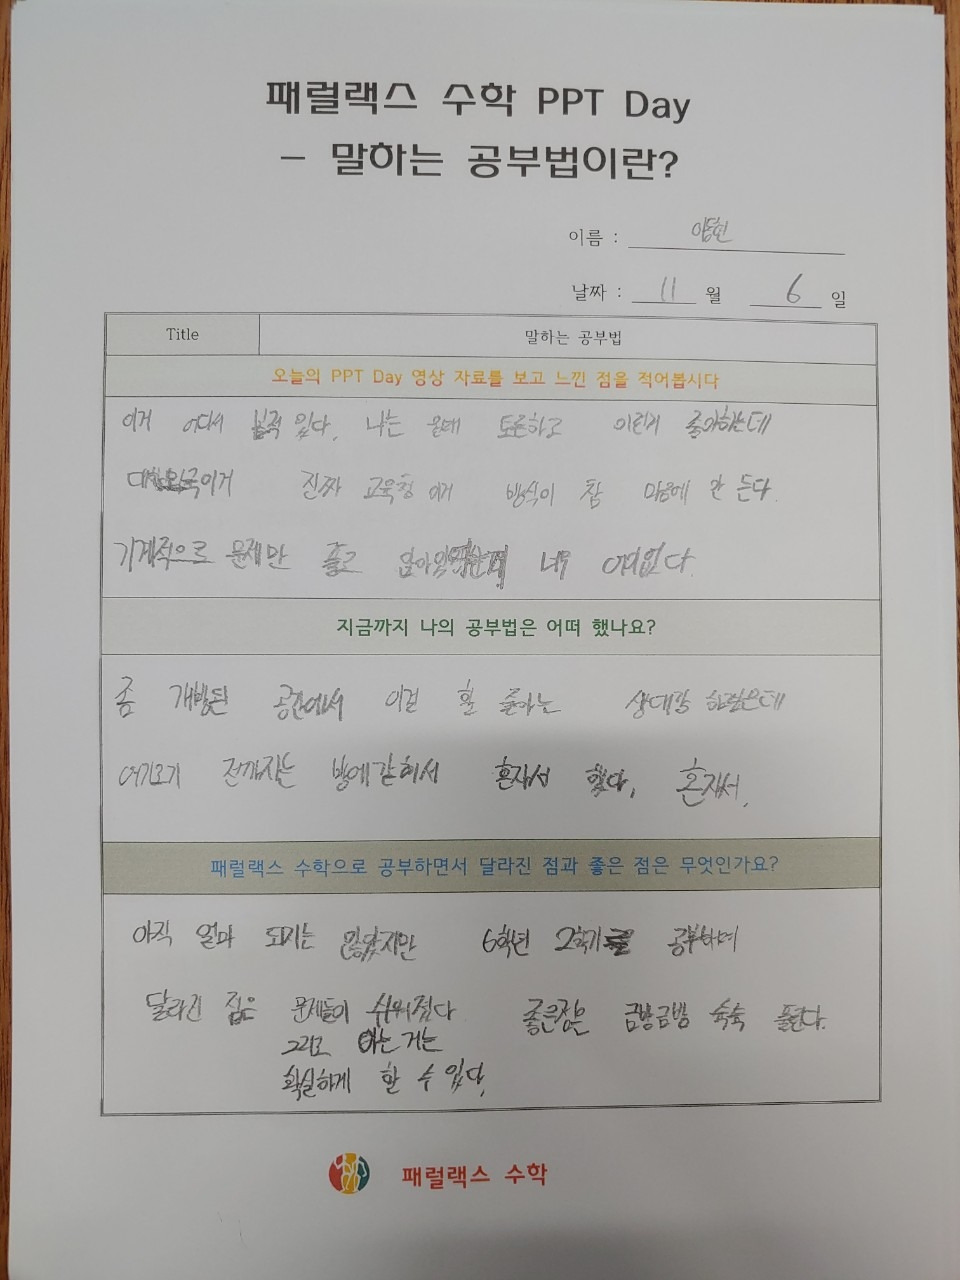 패럴랙스 수학 PPT Day
- 말하는 공부법이란?
이름 :
날짜 : 11 월 6 일
Title 말하는 공부법
오늘의 PPT Day 영상 자료를 보고 느낀 점을 적어봅시다
이거 어디서 본적 있다. 나는 원래 토론하고 이런게 좋아하는데
진짜 교육청 이거 방식이 참 마음에 안 든다.
기계적으로 문제만 풀고 너무 어이없다.
지금까지 나의 공부법은 어떠 했나요?
좀 개방된 공간에서 이걸 할 줄아는
여기오기 전까지는 방에갇혀서 혼자서 했다, 혼자서,
패럴랙스 수학으로 공부하면서 달라진 점과 좋은 점은 무엇인가요?
아직 얼마 되지는 않았지만 6학년 2학기를 공부하며
달라진 점은 문제들이 쉬워졌다 좋은점은 금방금방 숙숙 풀린다.
그리고 아는거는
확실하게 할 수 있다.
패럴랙스 수학